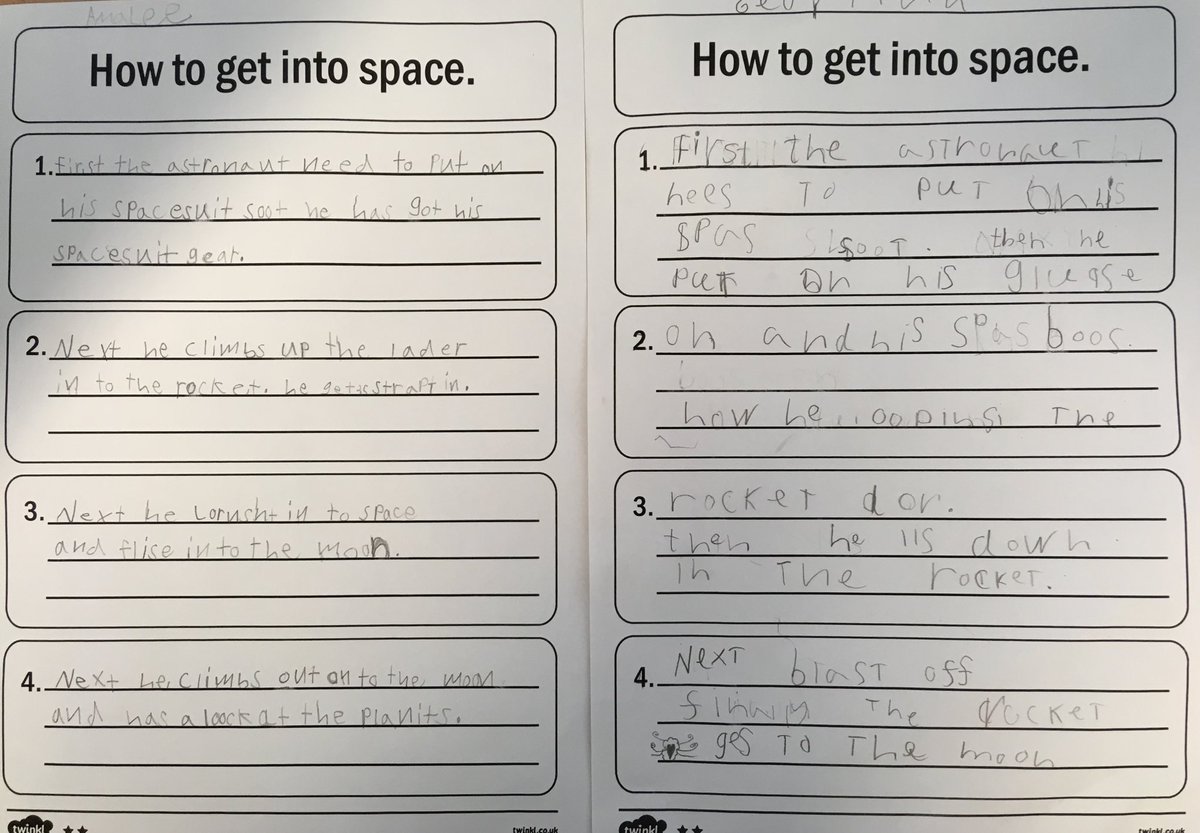 How to get into space.
1. First the astronaut need to put on
his spacesuit soot he has got his
spacesuit gear.
2. Next he climbs up the lader
in to the rocket. he strapt in.
3. Next he in to space
and flise in to the moon.
4. Next he climbs out on to the moon
and has a loock at the planits.
twinkl
twinkl.co.uk
How to get into space.
1. First the astronaut
nees to put on
spas soot. then he
put on his
2. on and his spas boos.
now he the
3. rocket dor.
then he down
in the rocket.
4. Next blast off
the rocket
ges to the moon
twinkl
twinkl.co.uk